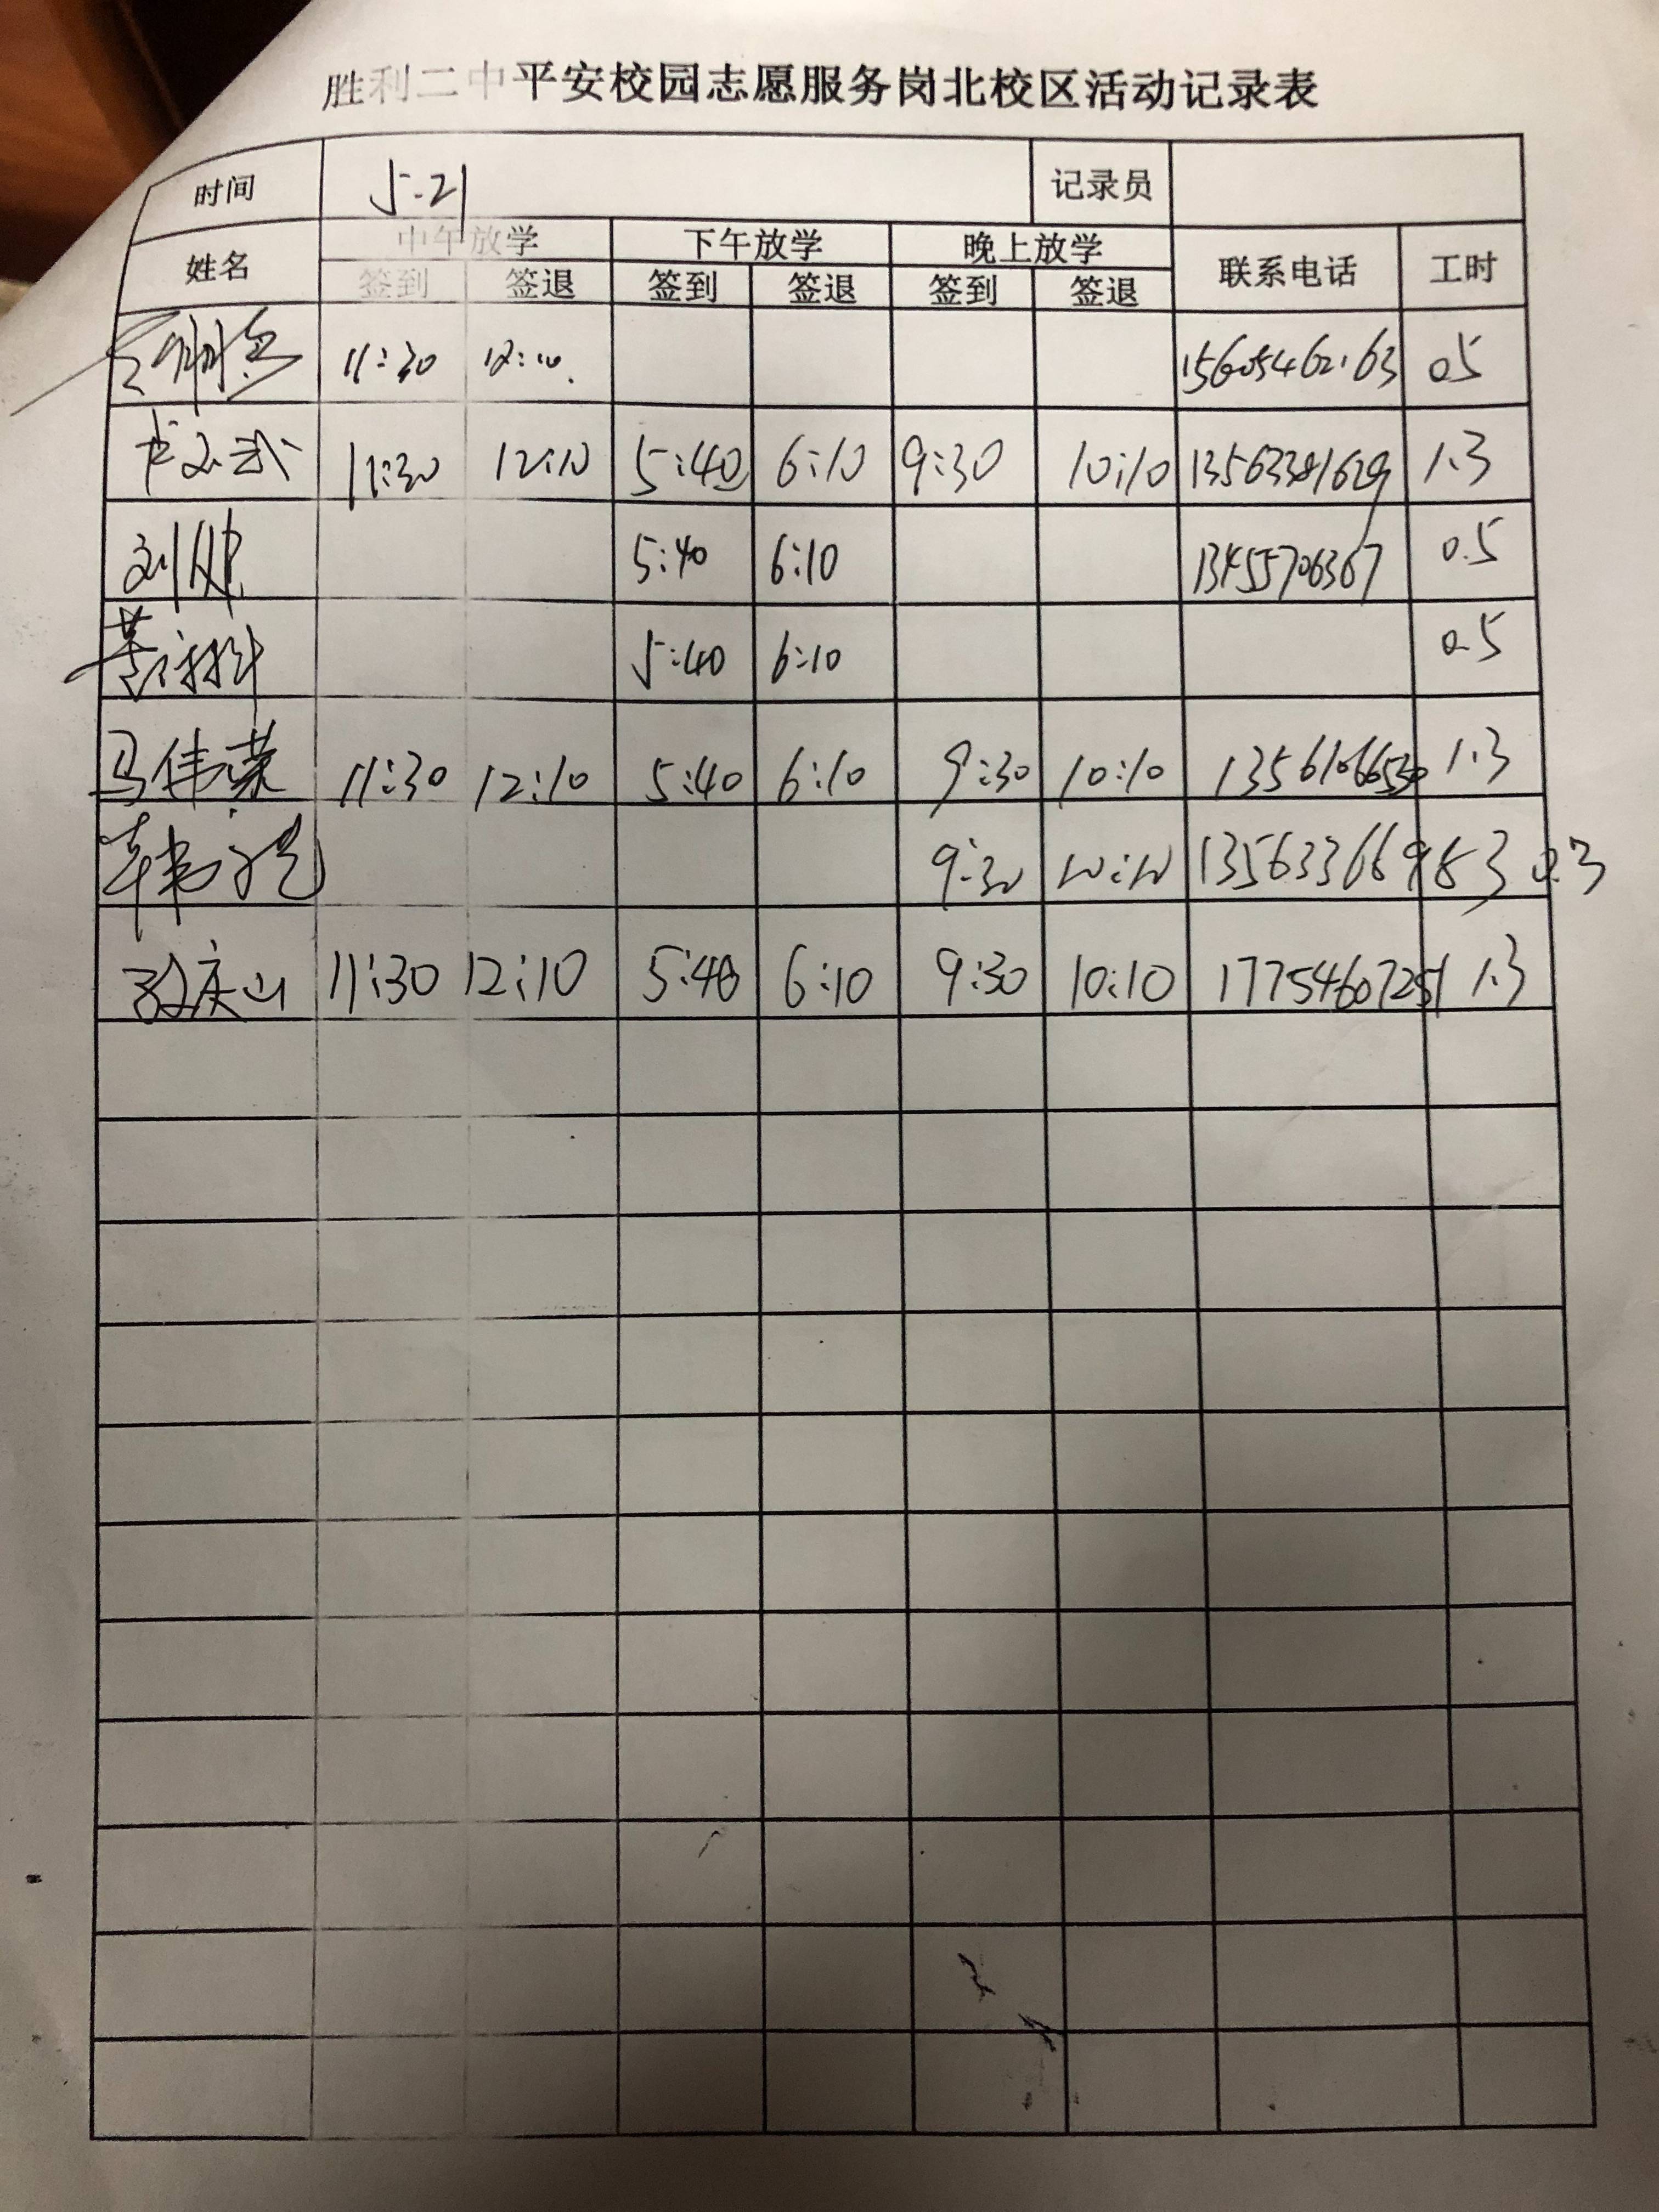 胜利二中平安校园志愿服务岗北校区活动记录表
时间 5.21 记录员
姓名 中午放学 下午放学 晚上放学 联系电话 工时
签到 签退 签到 签退 签到 签退
11:30 12:10 15605462163 0.5
11:30 12:10 5:40 6:10 9:30 10:10 1.3
刘健 5:40 6:10 13455706367 0.5
5:40 6:10 0.5
马伟荣 11:30 12:10 5:40 6:10 9:30 10:10 13561066530 1.3
9:30 10:10 13563366983 0.3
庆山 11:30 12:10 5:40 6:10 9:30 10:10 17754607251 1.3